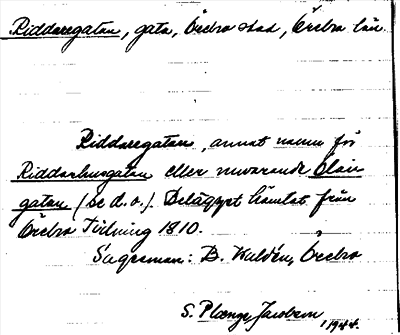 Riddaregatan, gata, Örebro stad, Örebro län.
Riddaregatan, annat namn för
Riddarhusgatan eller nuvarande Olai-
gatan (se d.o.). Belägget hämtat från
Örebro Tidning 1810.
Sagesman: B. Waldén, Örebro
S. Plænge Jacobson
1944.